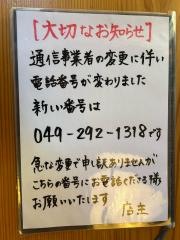 [大切なお知らせ]
通信事業者の変更に伴い
電話番号が変わりました
新しい番号は
049-292-1318です
急な変更で申し訳ありませんが
こちらの番号にお電話くださる様
お願いいたします
店主